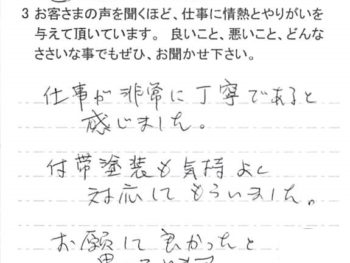 3 お客さまの声を聞くほど、仕事に情熱とやりがいを
与えて頂いています。 良いこと、悪いこと、どんな
ささいな事でもぜひ、お聞かせ下さい。
仕事が非常に丁寧であると
感じました。
付帯塗装も気持よく
対応してもらいました。
お願して良かったと
思っています